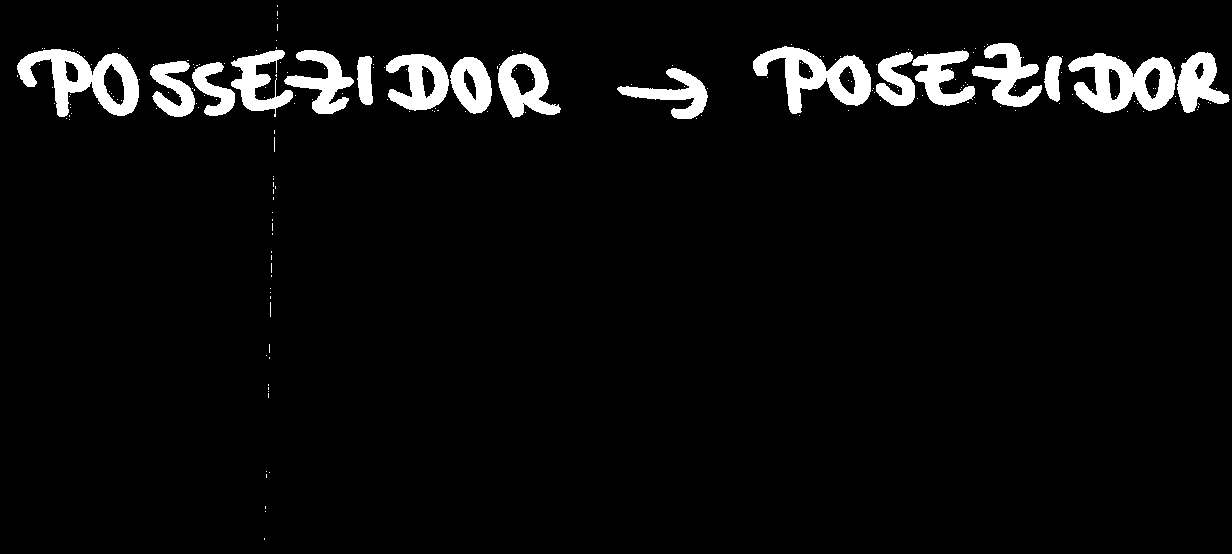 POSSEZIDOR → POSEZIDOR